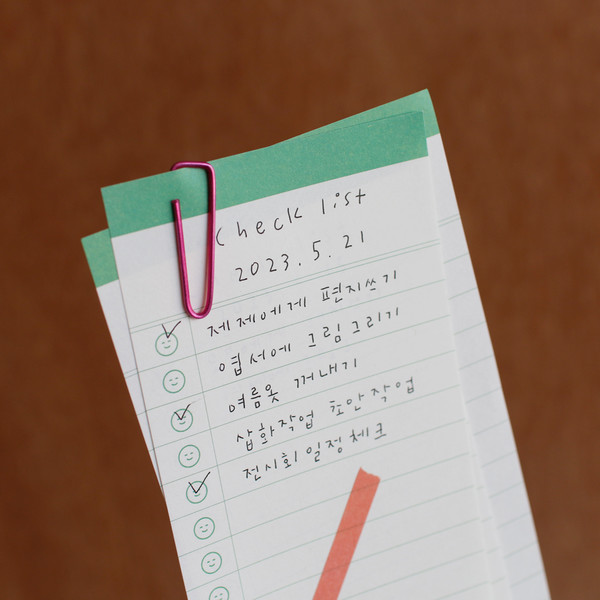 Check list
2023.5.21
제제에게 편지쓰기
엽서에 그림그리기
여름옷 꺼내기
삽화작업 초안작업
전시회 일정체크